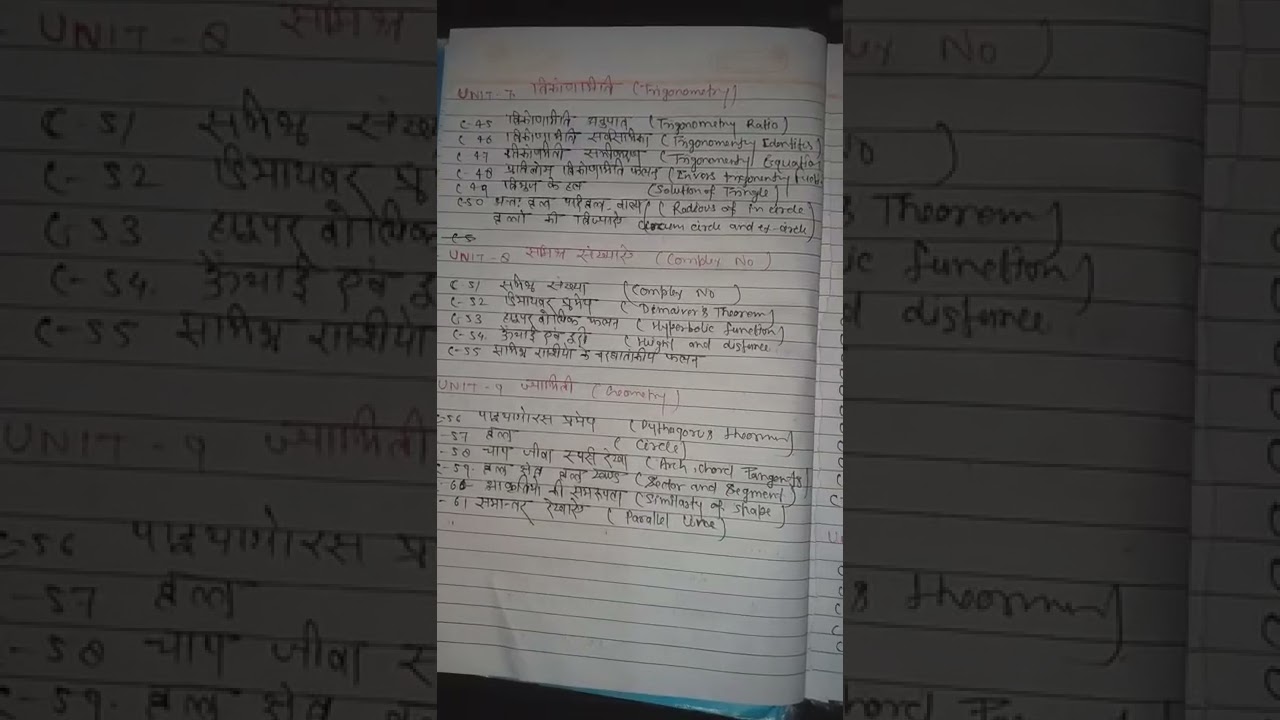 UNIT-7. त्रिकोणमिति (Trigonometry)
C-45 त्रिकोणमिति अनुपात (Trigonometry Ratio)
C 46 त्रिकोणमिति सर्वसमिका (Trigonomenty Identites)
C 47 त्रिकोणमिती समीकरण (Trigonomenty Equation
C-48 प्रतिलोम त्रिकोणमिति फलन (Invers trigonomentry
C 49 त्रिभुज के हल (Solution of Tringle)
C-50 अन्तः वृत्त परिवृत्त बाह्य (Radious of In circle
वृत्तों की त्रिज्याएं circum circle and ex-circle)
UNIT-8 समिश्र संख्याऐ (Complex No)
C 51 समिश्र संख्या (Complex No)
C-52 डिमायवर प्रमेय (Demaiver's Theorem)
C-53 हाइपर बोलिक फलन (Hyperbolic function)
C-54. ऊंचाई एवं दूरी (Hieght and distence
C-55 समिश्र राशीयो के चरघातांकीय फलन
UNIT-9 ज्यामिती (Geometry)
C-56 पाइथागोरस प्रमेय (Pythagoru's theorem)
-57 वृत्त (Circle)
-58 चाप जीवा स्पर्श रेखा (Arch, chord Tangents)
C-59. वृत्त क्षेत्र वृत्त खण्ड (Sector and Segment)
-60 आकृतियो की समरूपता (Similarty of shape)
-61 समान्तर रेखाऐ (Parallel Line)